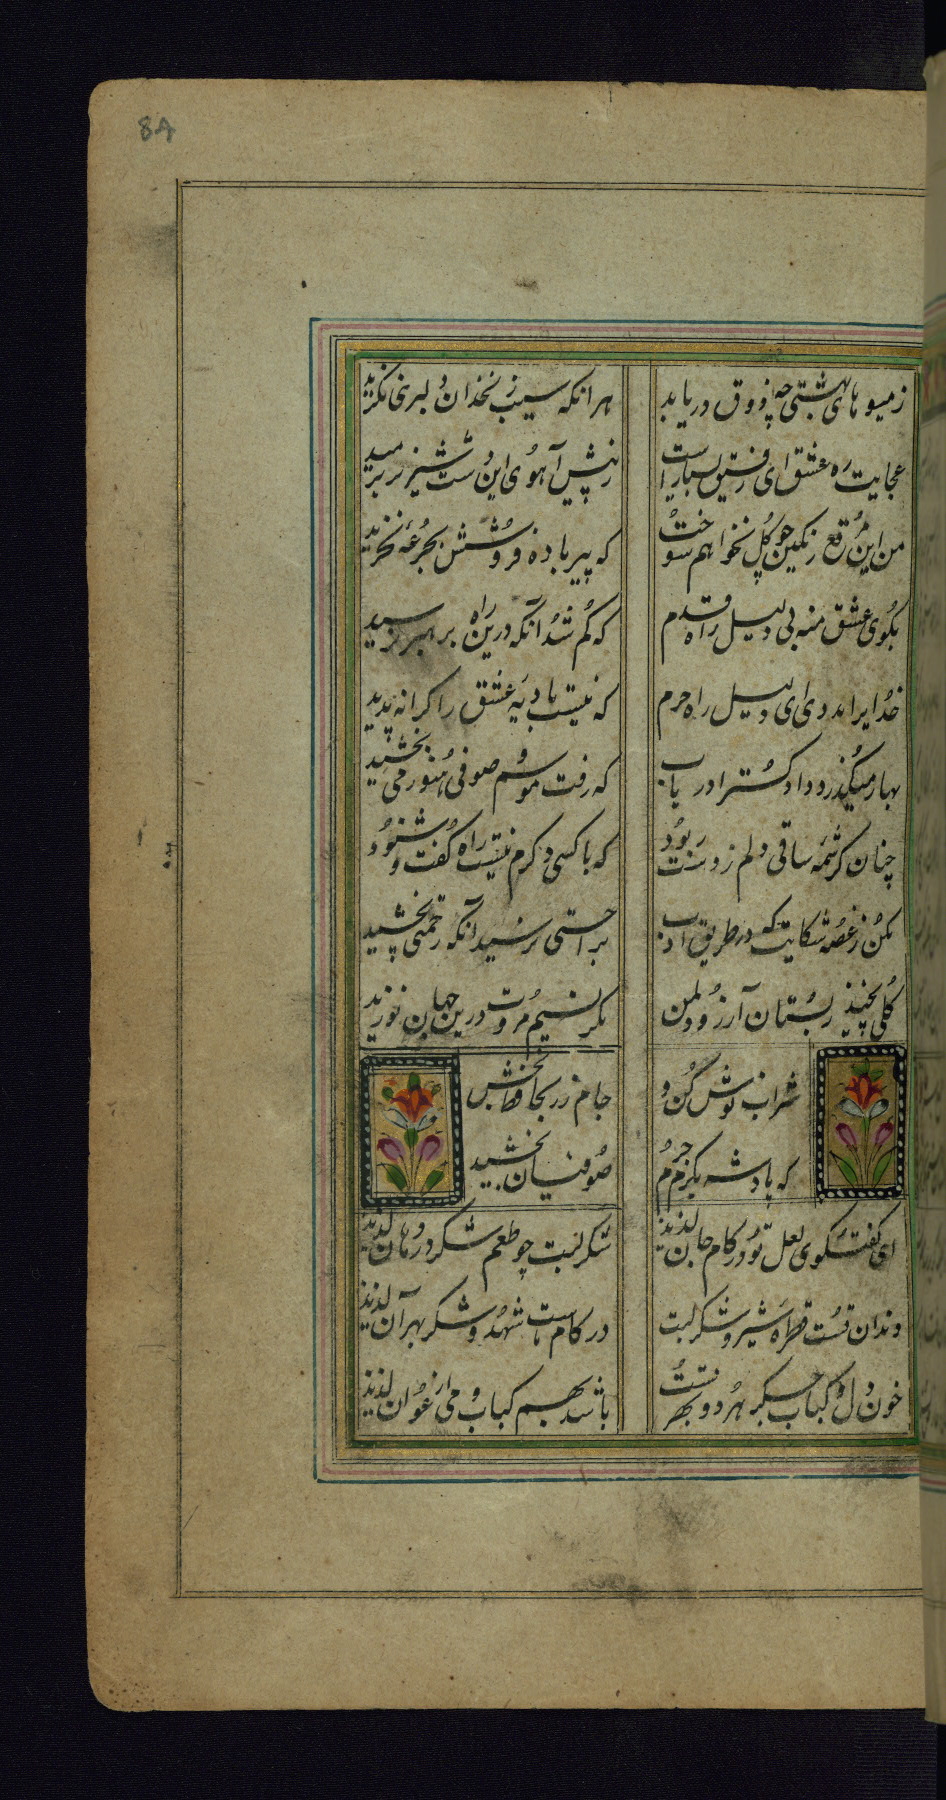 زمیوهای بهشتی چه ذوق دریابد
هر آنکه سیب زنخدان دلبری نگزید
عجایب ره عشق ای رفیق بسیار است
ز پیش آهوی این دشت شیر نر برمید
من این مرقع رنگین چو گل نخواهم سوخت
که پیر باده فروشش بجرعه نخرید
بکوی عشق منه بی دلیل راه قدم
که گم شد آنکه درین راه برهبر نرسید
خدایرا مددی ای دلیل راه حرم
که نیست بادیه عشق را کرانه پدید
بهار میگذرد دادگسترا دریاب
که رفت موسم صوفی هنوز می نچشید
چنان کرشمه ساقی دلم ز دست ربود
که با کسی دگرم نیست راه گفت و شنود
مکن ز غصه شکایت که در طریق ادب
براحتی نرسید آنکه زحمتی نچشید
گلی نچید ز بستان آرزو دل من
مگر نسیم مروت درین جهان نوزید
شراب نوش کن و
جام زر بحافظ بخش
که پادشه بکرم جرم
صوفیان بخشید
ای گفتگوی لعل تو در کام جان لذیذ
شکر لبت چو طعم شکر در دهان لذیذ
دندان تست قطره شیر و شکر لبت
در کام ماست شهد و شکر بهر آن لذیذ
خون دل و کباب جگر هر دو بهر تست
باشد بهم کباب و می ارغوان لذیذ